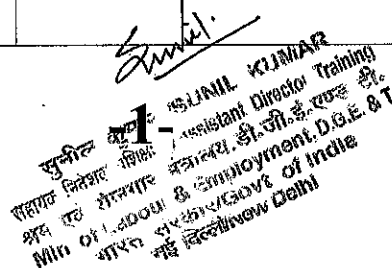 Sunil.
सुनील कुमार SUNIL KUMAR
सहायक निदेशक / Assistant Director Training
श्रम एवं रोजगार मंत्रालय, डी.जी.ई. एण्ड टी.
Min of Labour & Employment, D.G.E. & T
भारत सरकार/Govt of India
नई दिल्ली/New Delhi
-1-